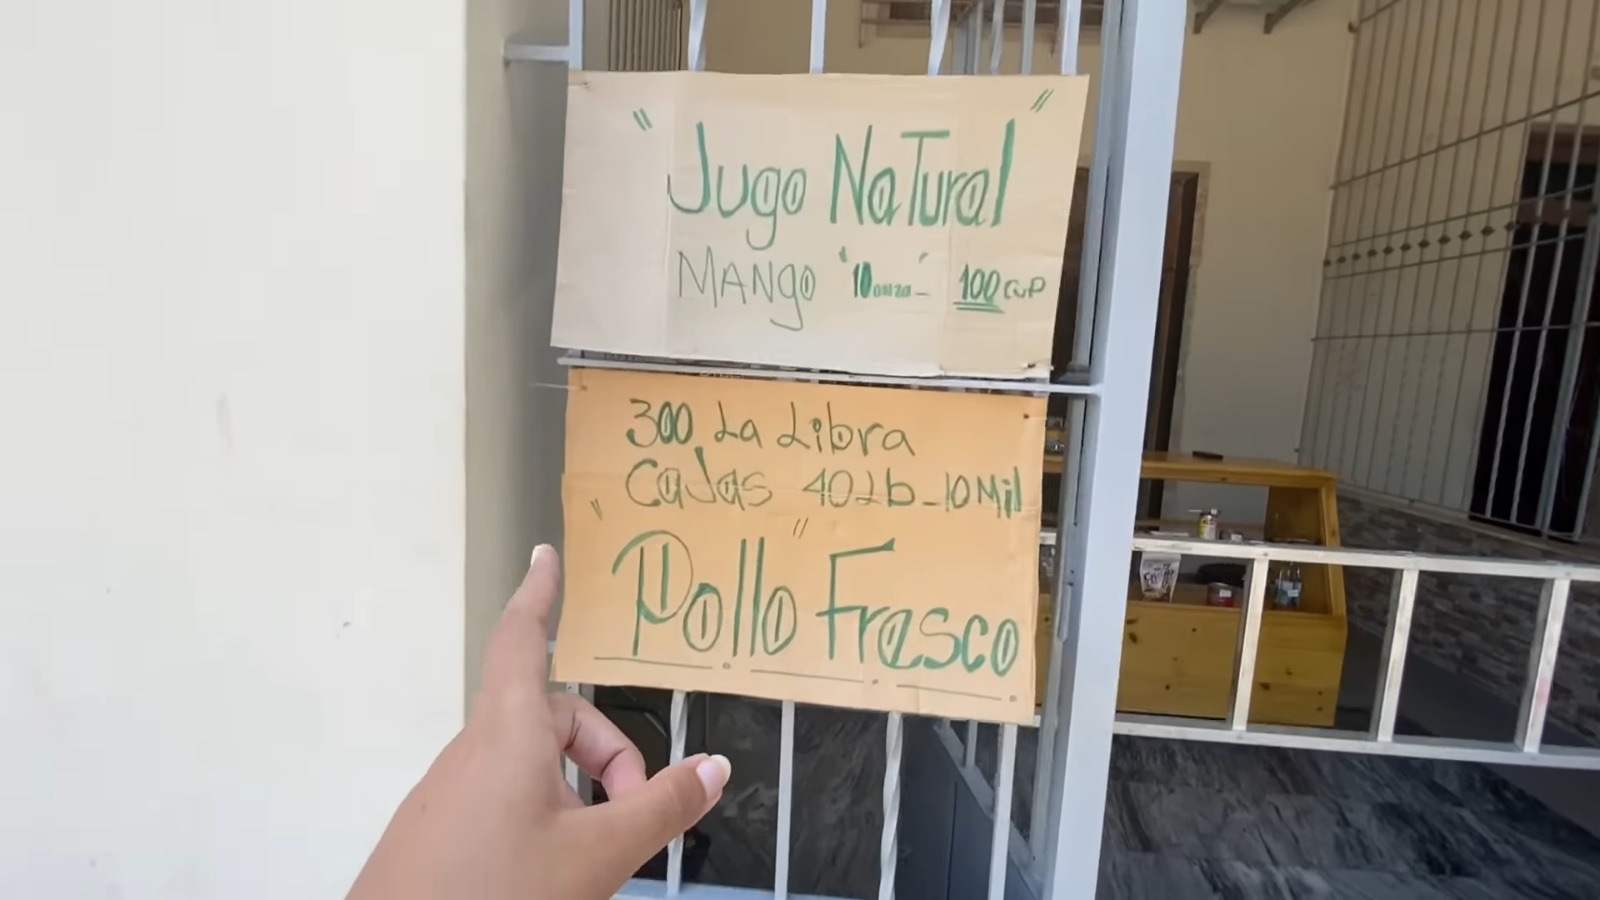 "Jugo NaTural"
MANgo "10onza" 100 CUP
300 La Libra
CaJas 40Lb-10Mil
"Pollo" Fresco